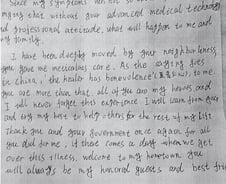 Since my symptoms were not so
ying that without your advanced medical technology
nd professional attitude, what will happen to me and
my family.
I have been deeply moved by your neighborliness,
you gave me meticulous care. As the saying goes
in China, the healer has benevolence to me,
you are more than that, all of you are my heroes and
I will never forget this experience. I will learn from you
and try my best to help others for the rest of my life
Thank you and your government once again for all
you did for me, if there comes a day when we get
over this illness, welcome to my hometown you
will always be my honored guests and best frie